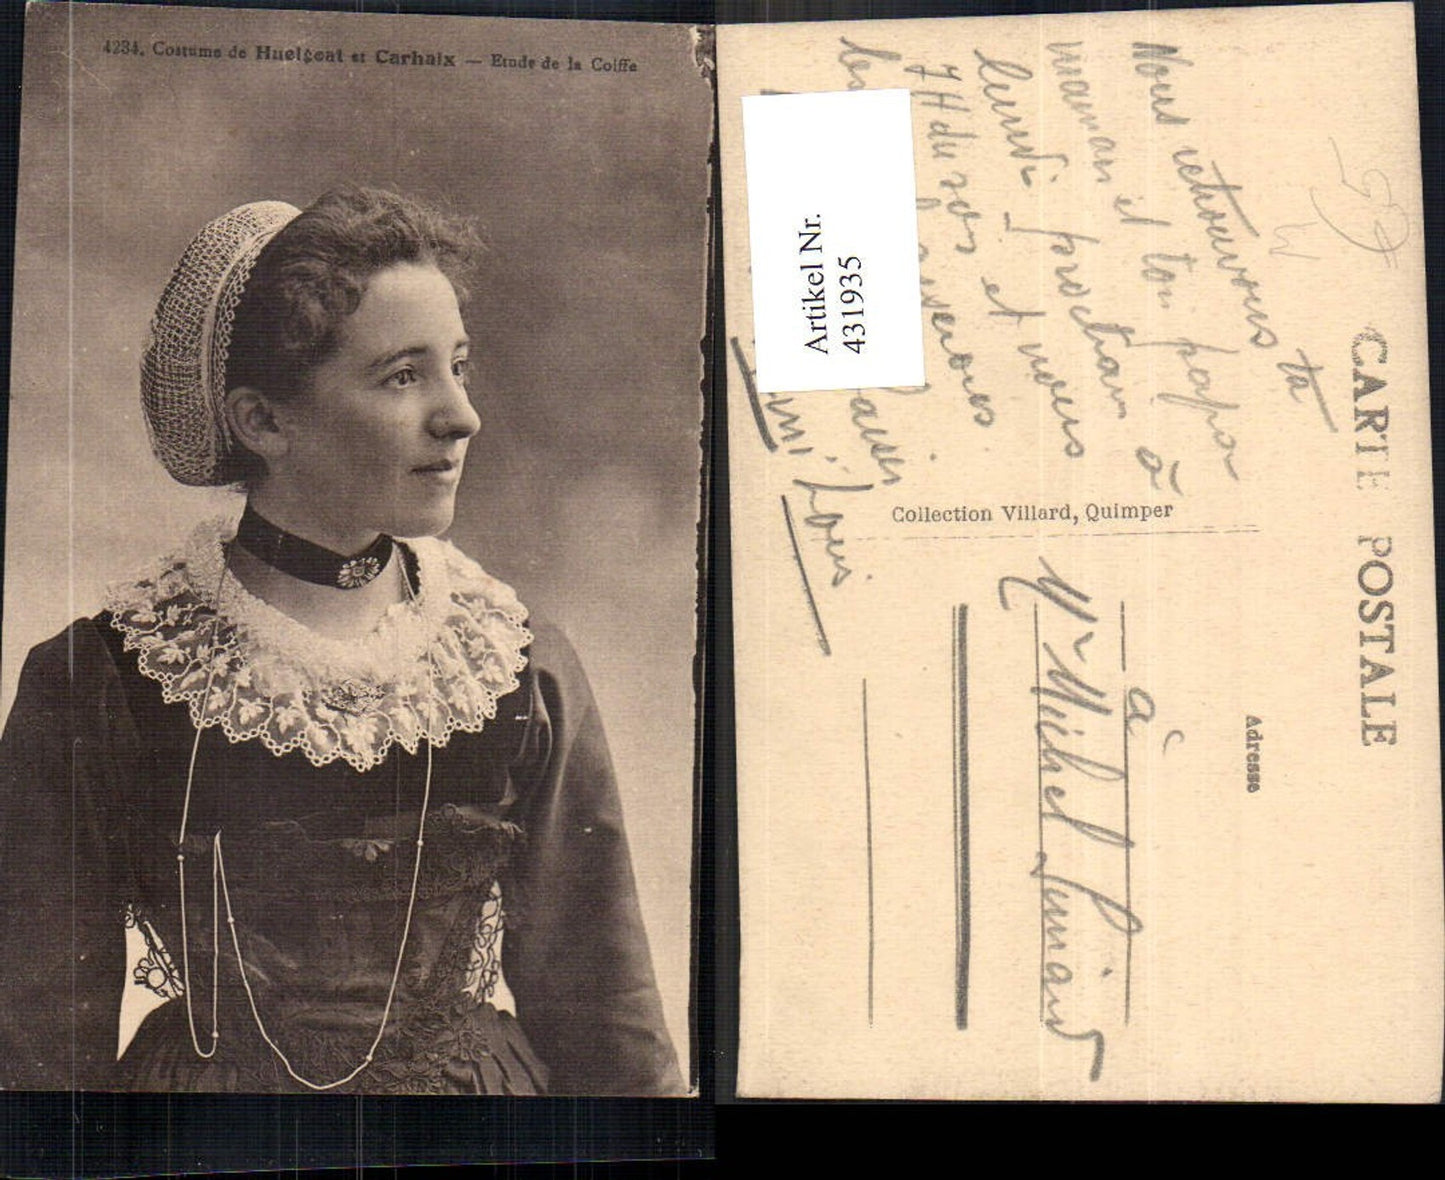 4234. Costume de Huelgoat et Carhaix — Etude de la Coiffe
CARTE POSTALE
Adresse
Collection Villard, Quimper
Artikel Nr.
431935
Nous retrouvons ta
maman et ton papa
lundi prochain à
7H du soir et nous
les
Louis
à
Mr Michel